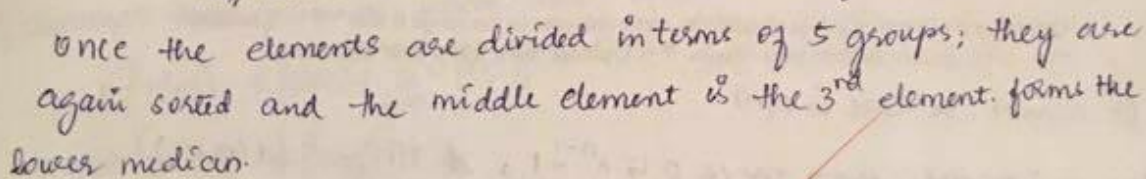 Once the elements are divided in terms of 5 groups; they are
again sorted and the middle element is the 3rd element. forms the
lower median.